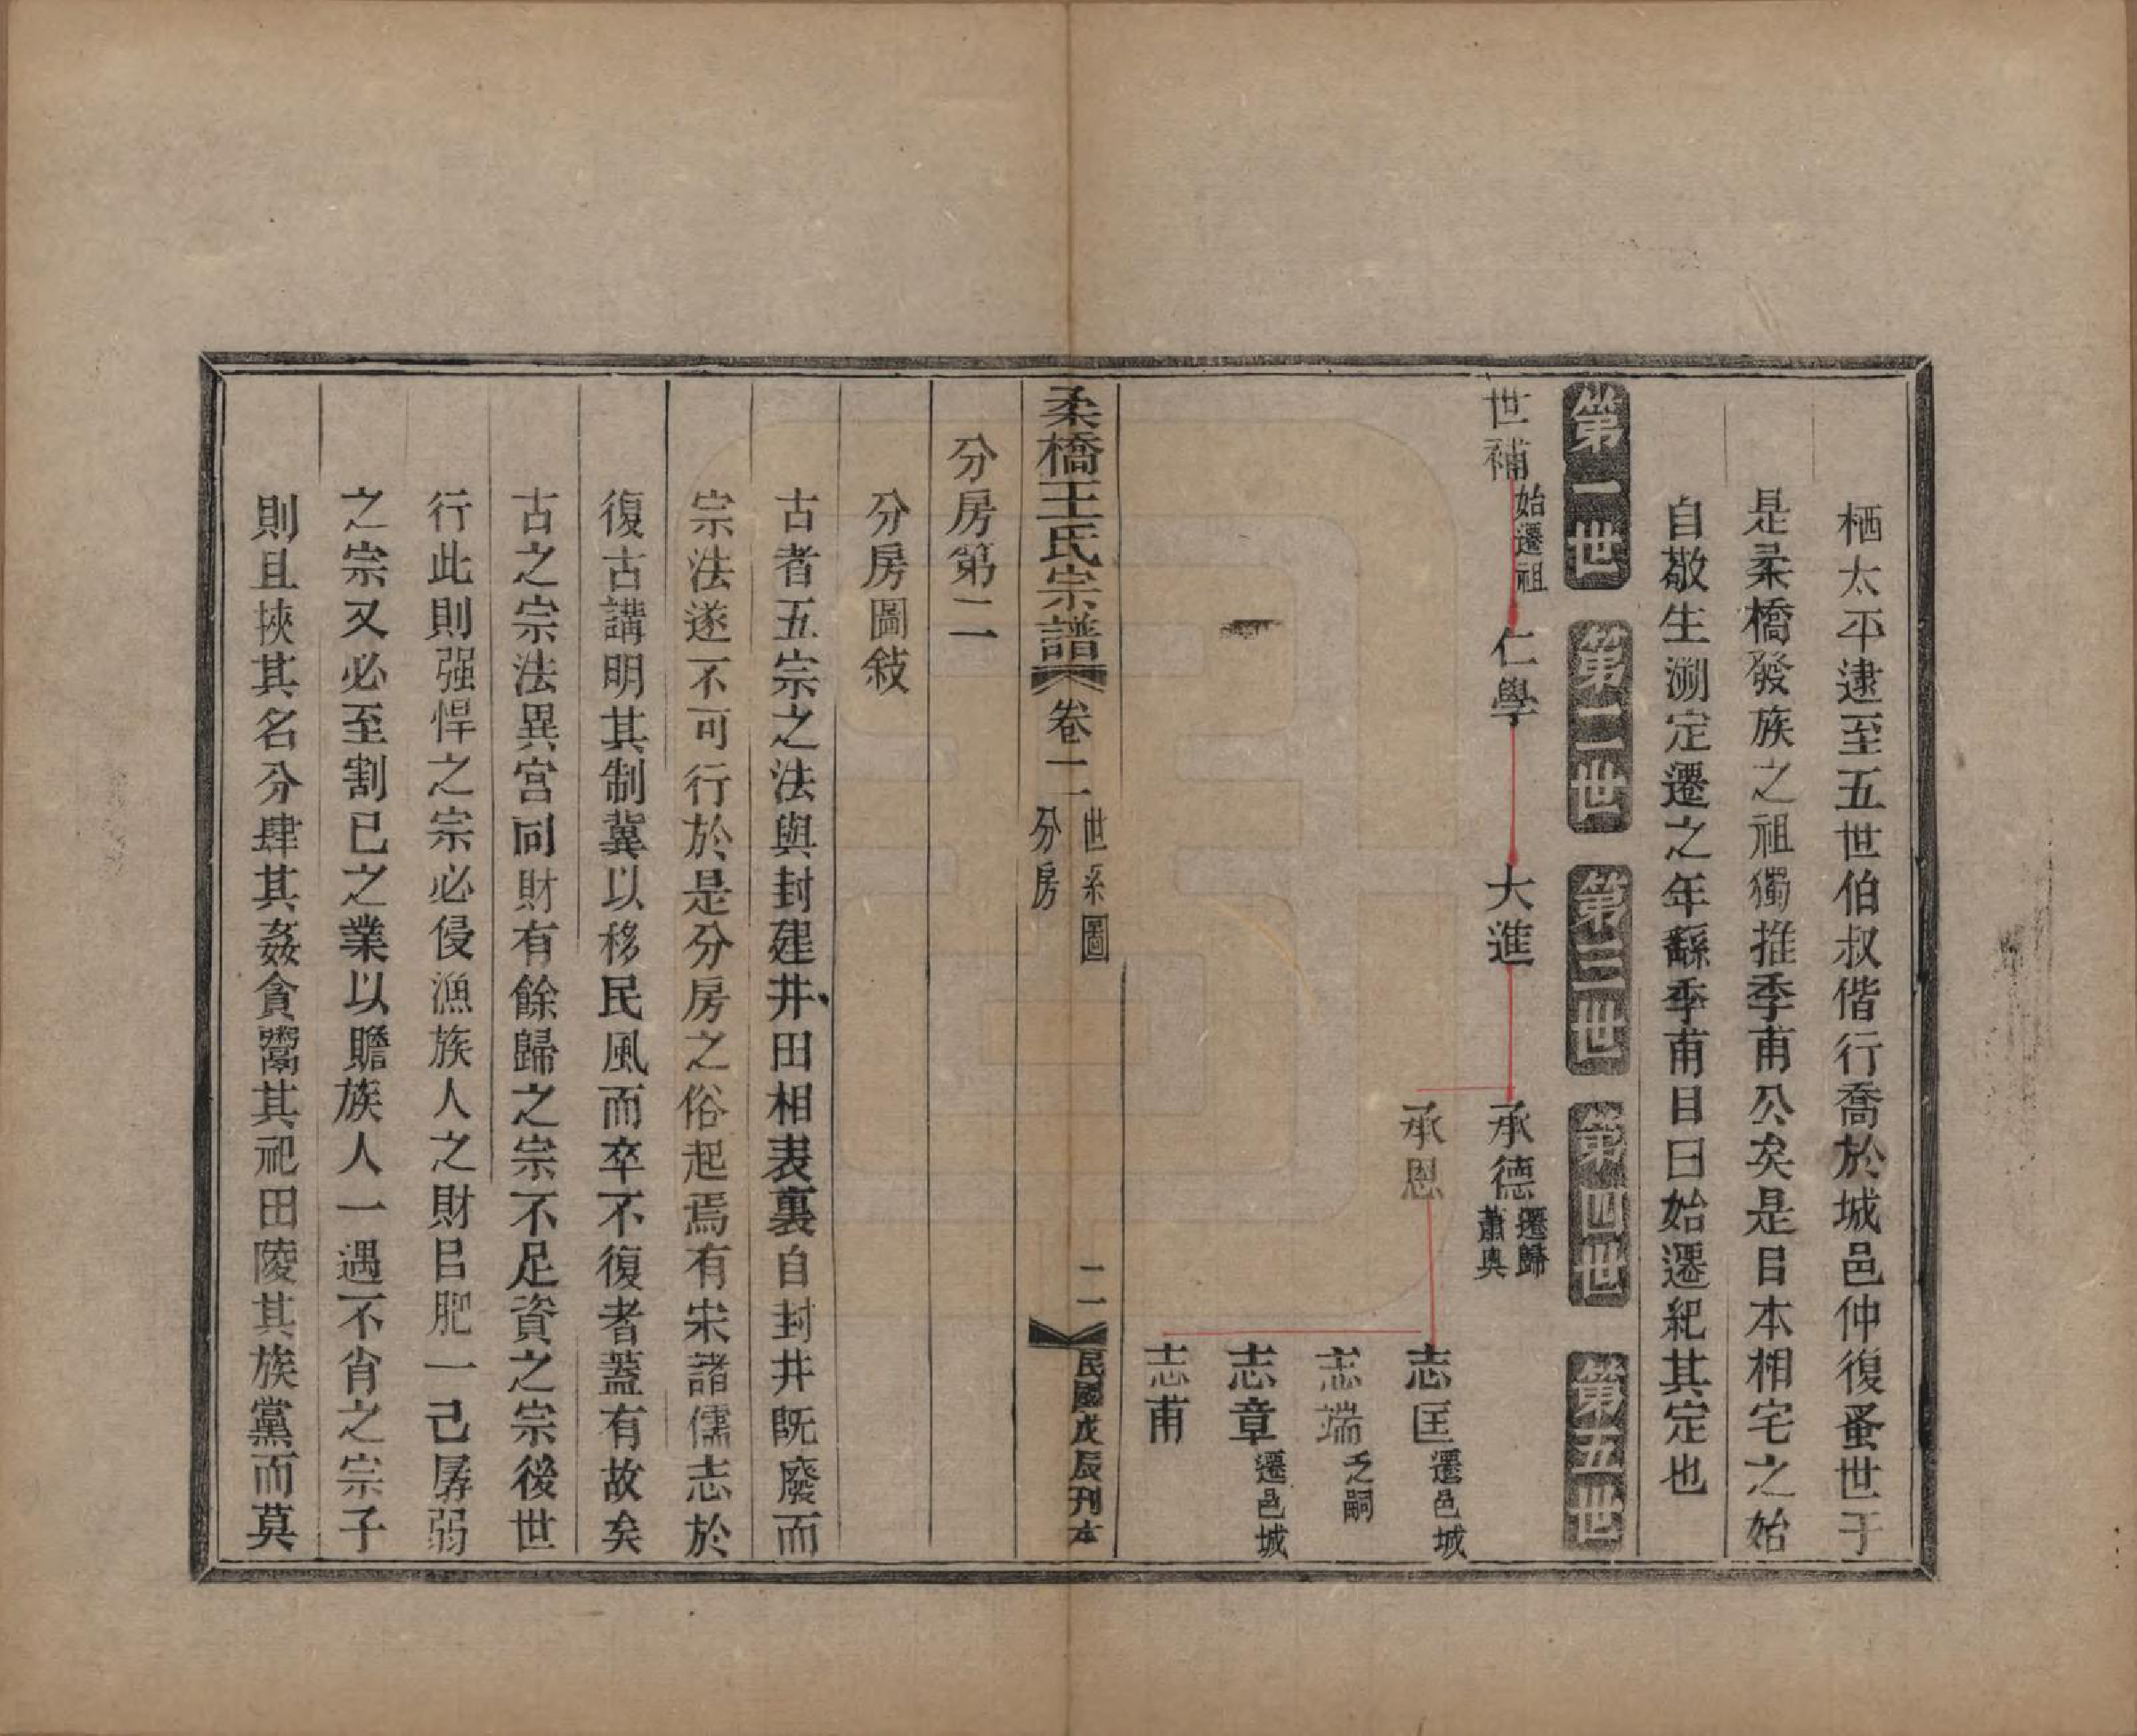 栖太平逮至五世伯叔偕行喬於城邑仲復蚤世于
是柔橋發族之祖獨推季甫公矣是㠯本相宅之始
自敬生溯定遷之年繇季甫㠯曰始遷紀其定也
第一世 第二世 第三世 第四世 第五世
世補 始遷祖
仁學
大進
承德 遷歸蕭奧
承恩
志匡 遷邑城
志端 乏嗣
志章 遷邑城
志甫
柔橋王氏宗譜 卷二 世系圖 分房 二 民國戊辰刊本
分房第二
分房圖敍
古者五宗之法與封建井田相表裏自封井既廢而
宗法遂不可行於是分房之俗起焉有宋諸儒志於
復古講明其制冀以移民風而卒不復者蓋有故矣
古之宗法異宮同財有餘歸之宗不足資之宗後世
行此則强悍之宗必侵漁族人之財㠯肥一己孱弱
之宗又必至割已之業以贍族人一遇不肖之宗子
則且挾其名分肆其姦貪鬻其祀田陵其族黨而莫